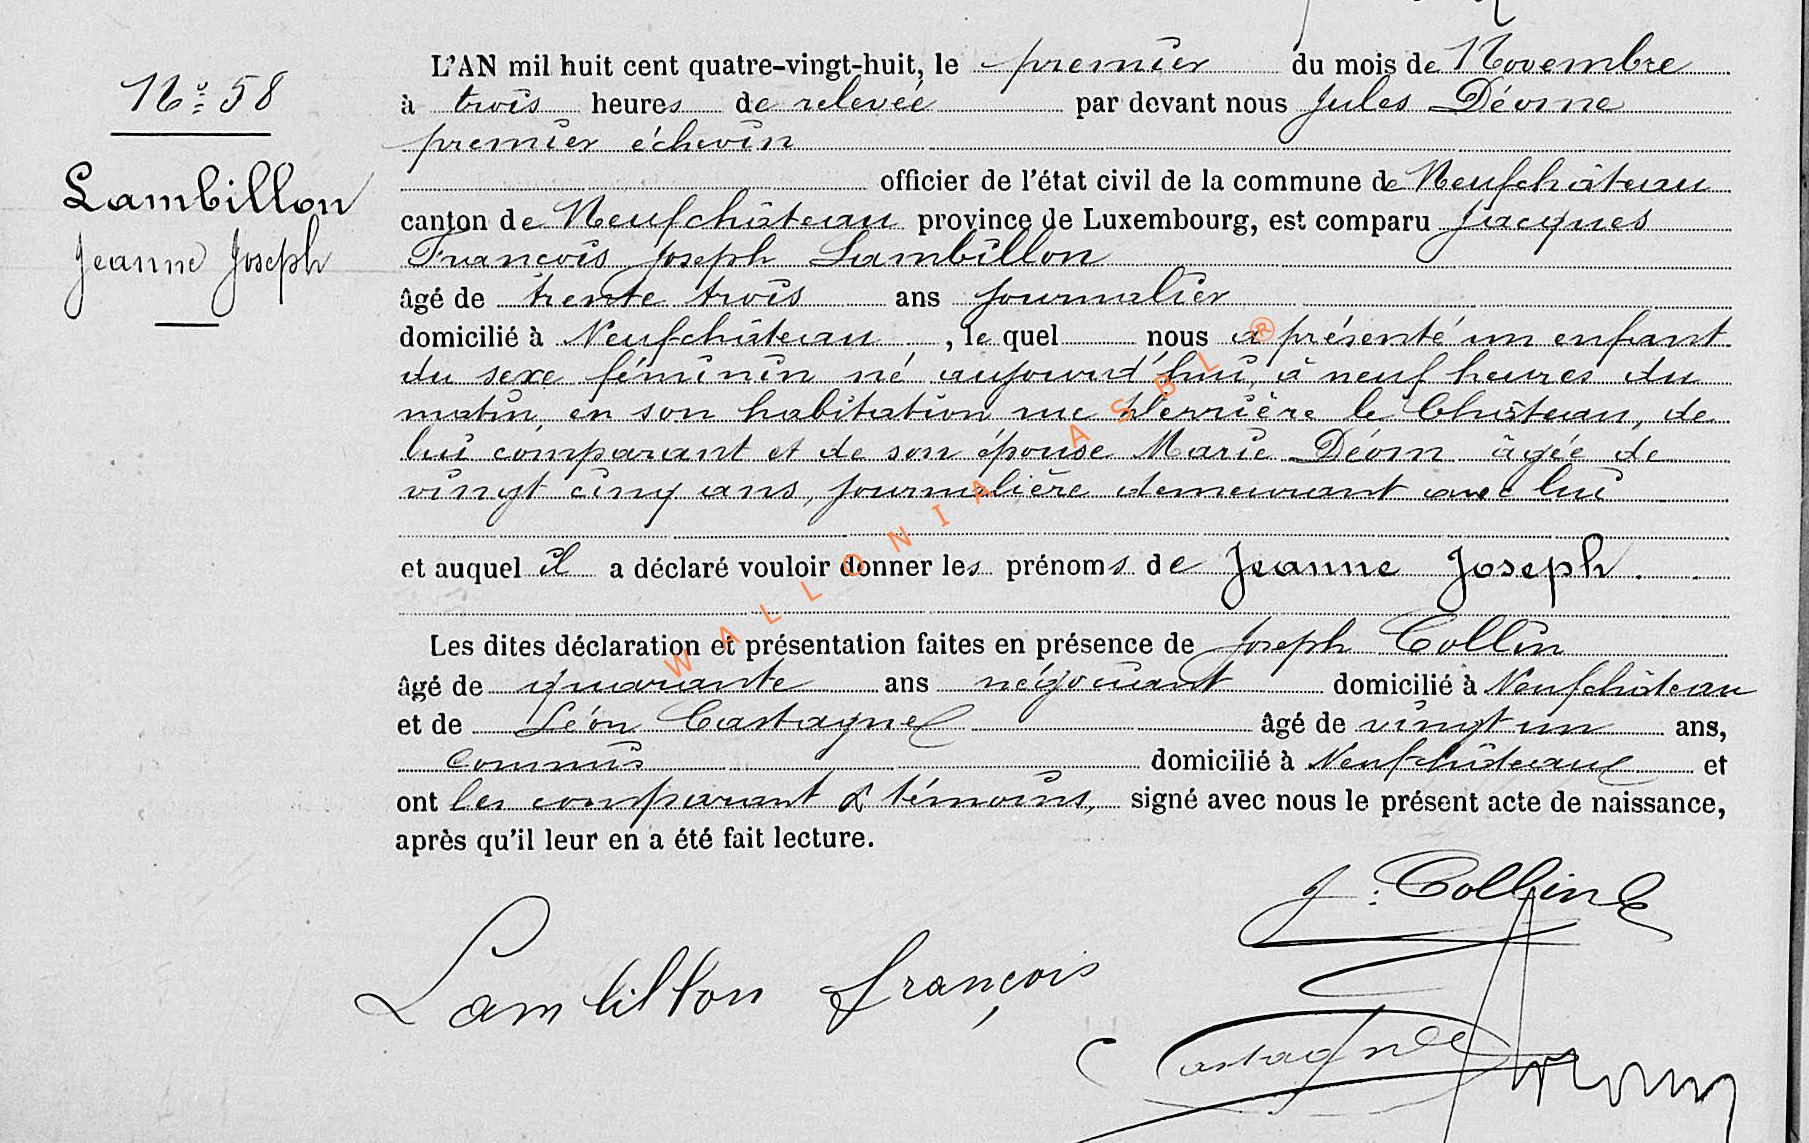 N° 58
Lambillon
Jeanne Joseph
L'AN mil huit cent quatre-vingt-huit, le premier du mois de Novembre
à trois heures de relevée par devant nous Jules
premier échevin
officier de l'état civil de la commune de Neufchâteau
canton de Neufchâteau province de Luxembourg, est comparu Jacques
François Joseph Lambillon
âgé de trente trois ans journalier
domicilié à Neufchâteau, le quel nous a présenté un enfant
du sexe féminin né aujourd'hui, à neuf heures du
matin, en son habitation rue Derrière le Château, de
lui comparant et de son épouse Marie Déom âgée de
vingt cinq ans, journalière demeurant avec lui
et auquel il a déclaré vouloir donner les prénoms de Jeanne Joseph.
Les dites déclaration et présentation faites en présence de Joseph Collin
âgé de quarante ans négociant domicilié à Neufchâteau
et de Léon Castagne âgé de vingt un ans,
commis domicilié à Neufchâteau et
ont les comparant & témoins, signé avec nous le présent acte de naissance,
après qu'il leur en a été fait lecture.
J. Collin
Lambillon françois
Castagne
WALLONIA ASBL ®